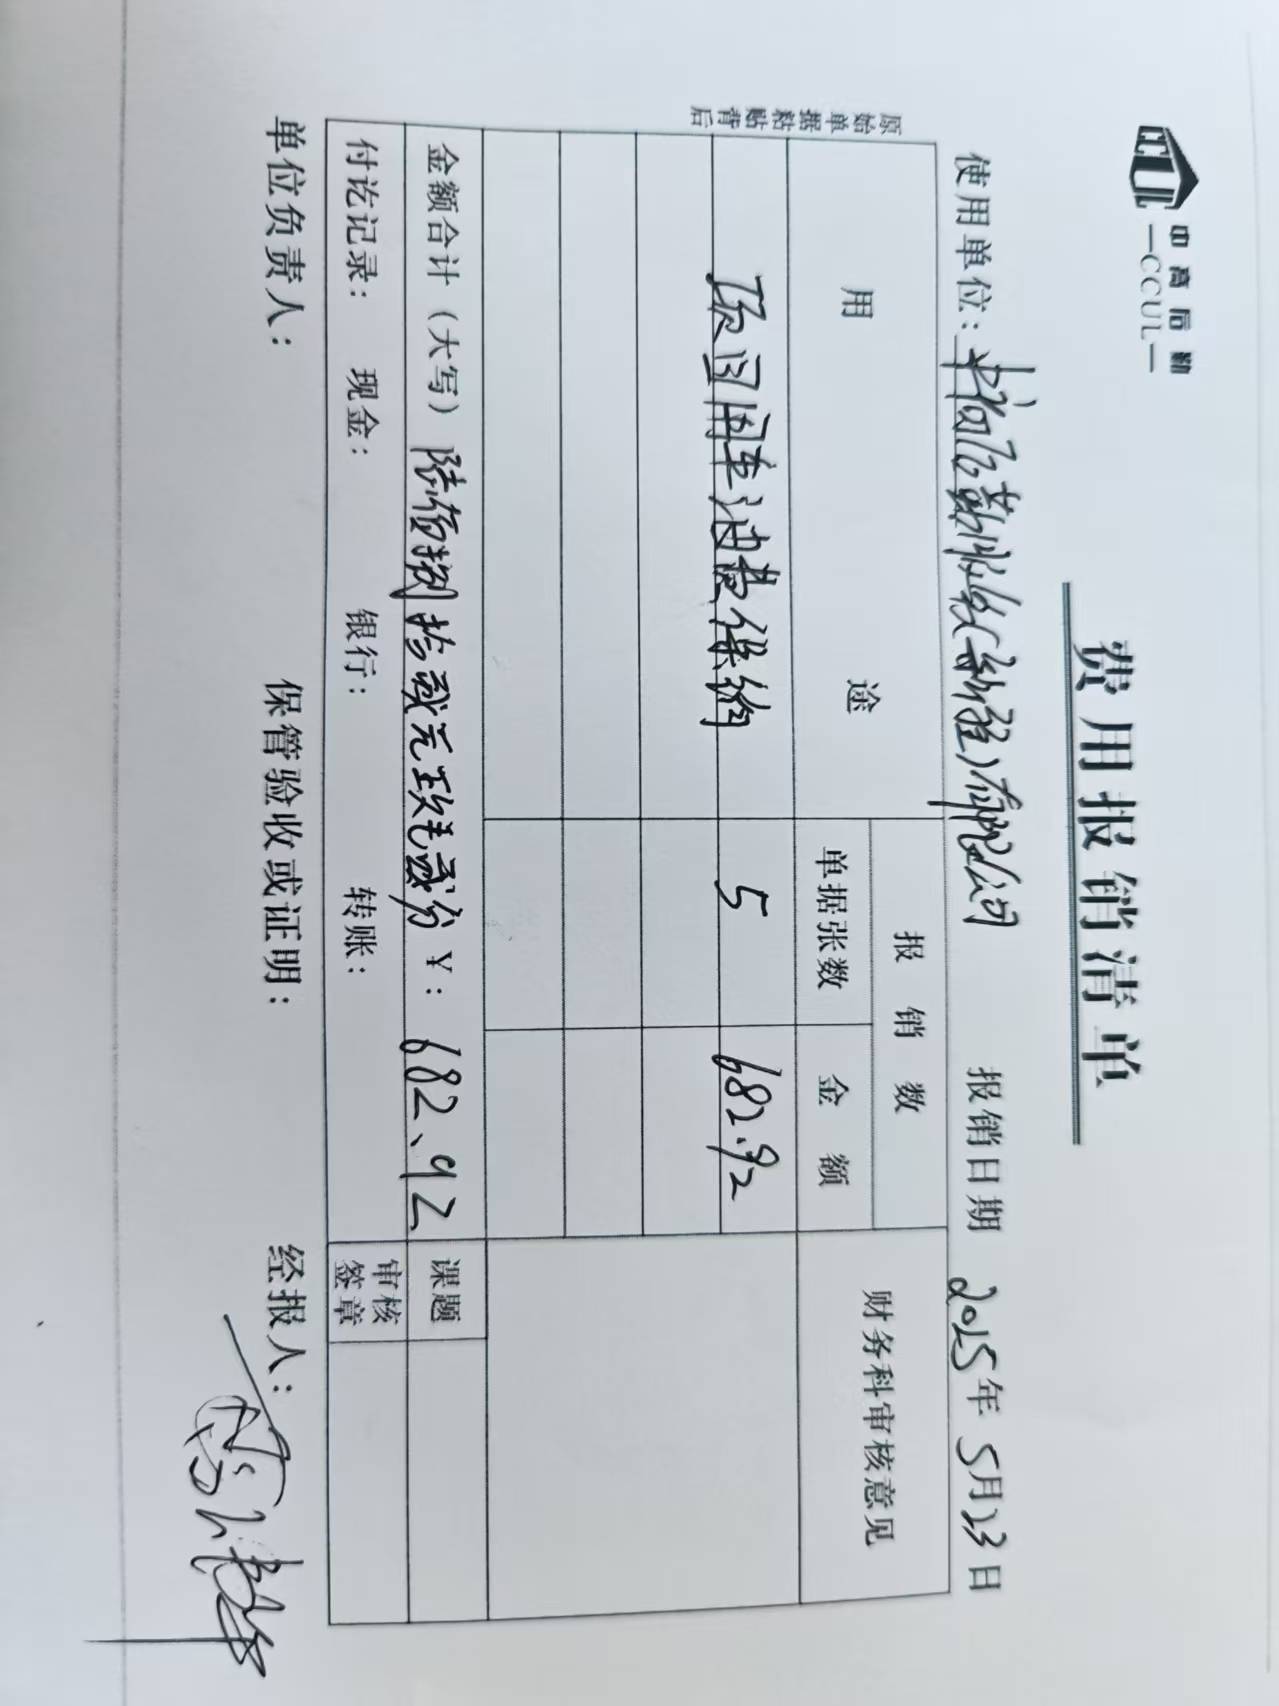 中高后勤
—CCUL—
费用报销清单
使用单位：中高后勤科技(新疆)有限公司 报销日期 2025年5月23日
用途 报销数 财务科审核意见
单据张数 金额
项目用车油费保销 5 682.92
金额合计（大写）陆佰捌拾贰元玖毛贰分 ¥：682、92 课题
付讫记录： 现金： 银行： 转账： 审核签章
单位负责人： 保管验收或证明： 经报人：
原始单据粘贴背后